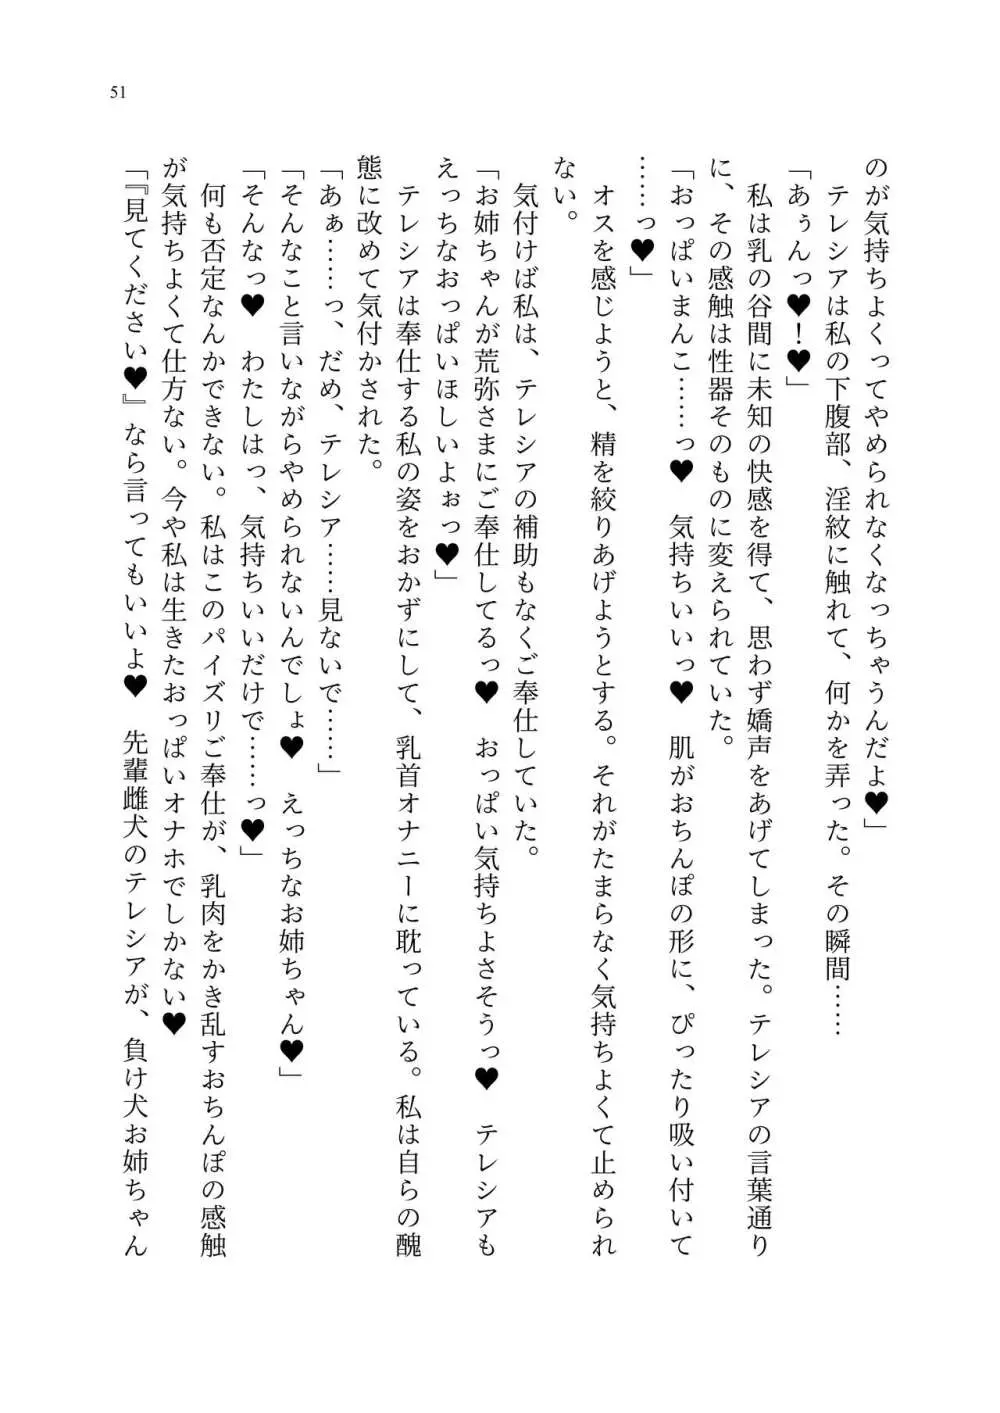 51
のが気持ちよくってやめられなくなっちゃうんだよ♥」
　テレシアは私の下腹部、淫紋に触れて、何かを弄った。その瞬間……
「あぅんっ♥！♥」
　私は乳の谷間に未知の快感を得て、思わず嬌声をあげてしまった。テレシアの言葉通り
に、その感触は性器そのものに変えられていた。
「おっぱいまんこ……っ♥　気持ちいいっ♥　肌がおちんぽの形に、ぴったり吸い付いて
……っ♥」
　オスを感じようと、精を絞りあげようとする。それがたまらなく気持ちよくて止められ
ない。
　気付けば私は、テレシアの補助もなくご奉仕していた。
「お姉ちゃんが荒弥さまにご奉仕してるっ♥　おっぱい気持ちよさそうっ♥　テレシアも
えっちなおっぱいほしいよぉっ♥」
　テレシアは奉仕する私の姿をおかずにして、乳首オナニーに耽っている。私は自らの醜
態に改めて気付かされた。
「あぁ……っ、だめ、テレシア……見ないで……」
「そんなこと言いながらやめられないんでしょ♥　えっちなお姉ちゃん♥」
「そんなっ♥　わたしはっ、気持ちいいだけで……っ♥」
　何も否定なんかできない。私はこのパイズリご奉仕が、乳肉をかき乱すおちんぽの感触
が気持ちよくて仕方ない。今や私は生きたおっぱいオナホでしかない♥
「『見てください♥』なら言ってもいいよ♥　先輩雌犬のテレシアが、負け犬お姉ちゃん